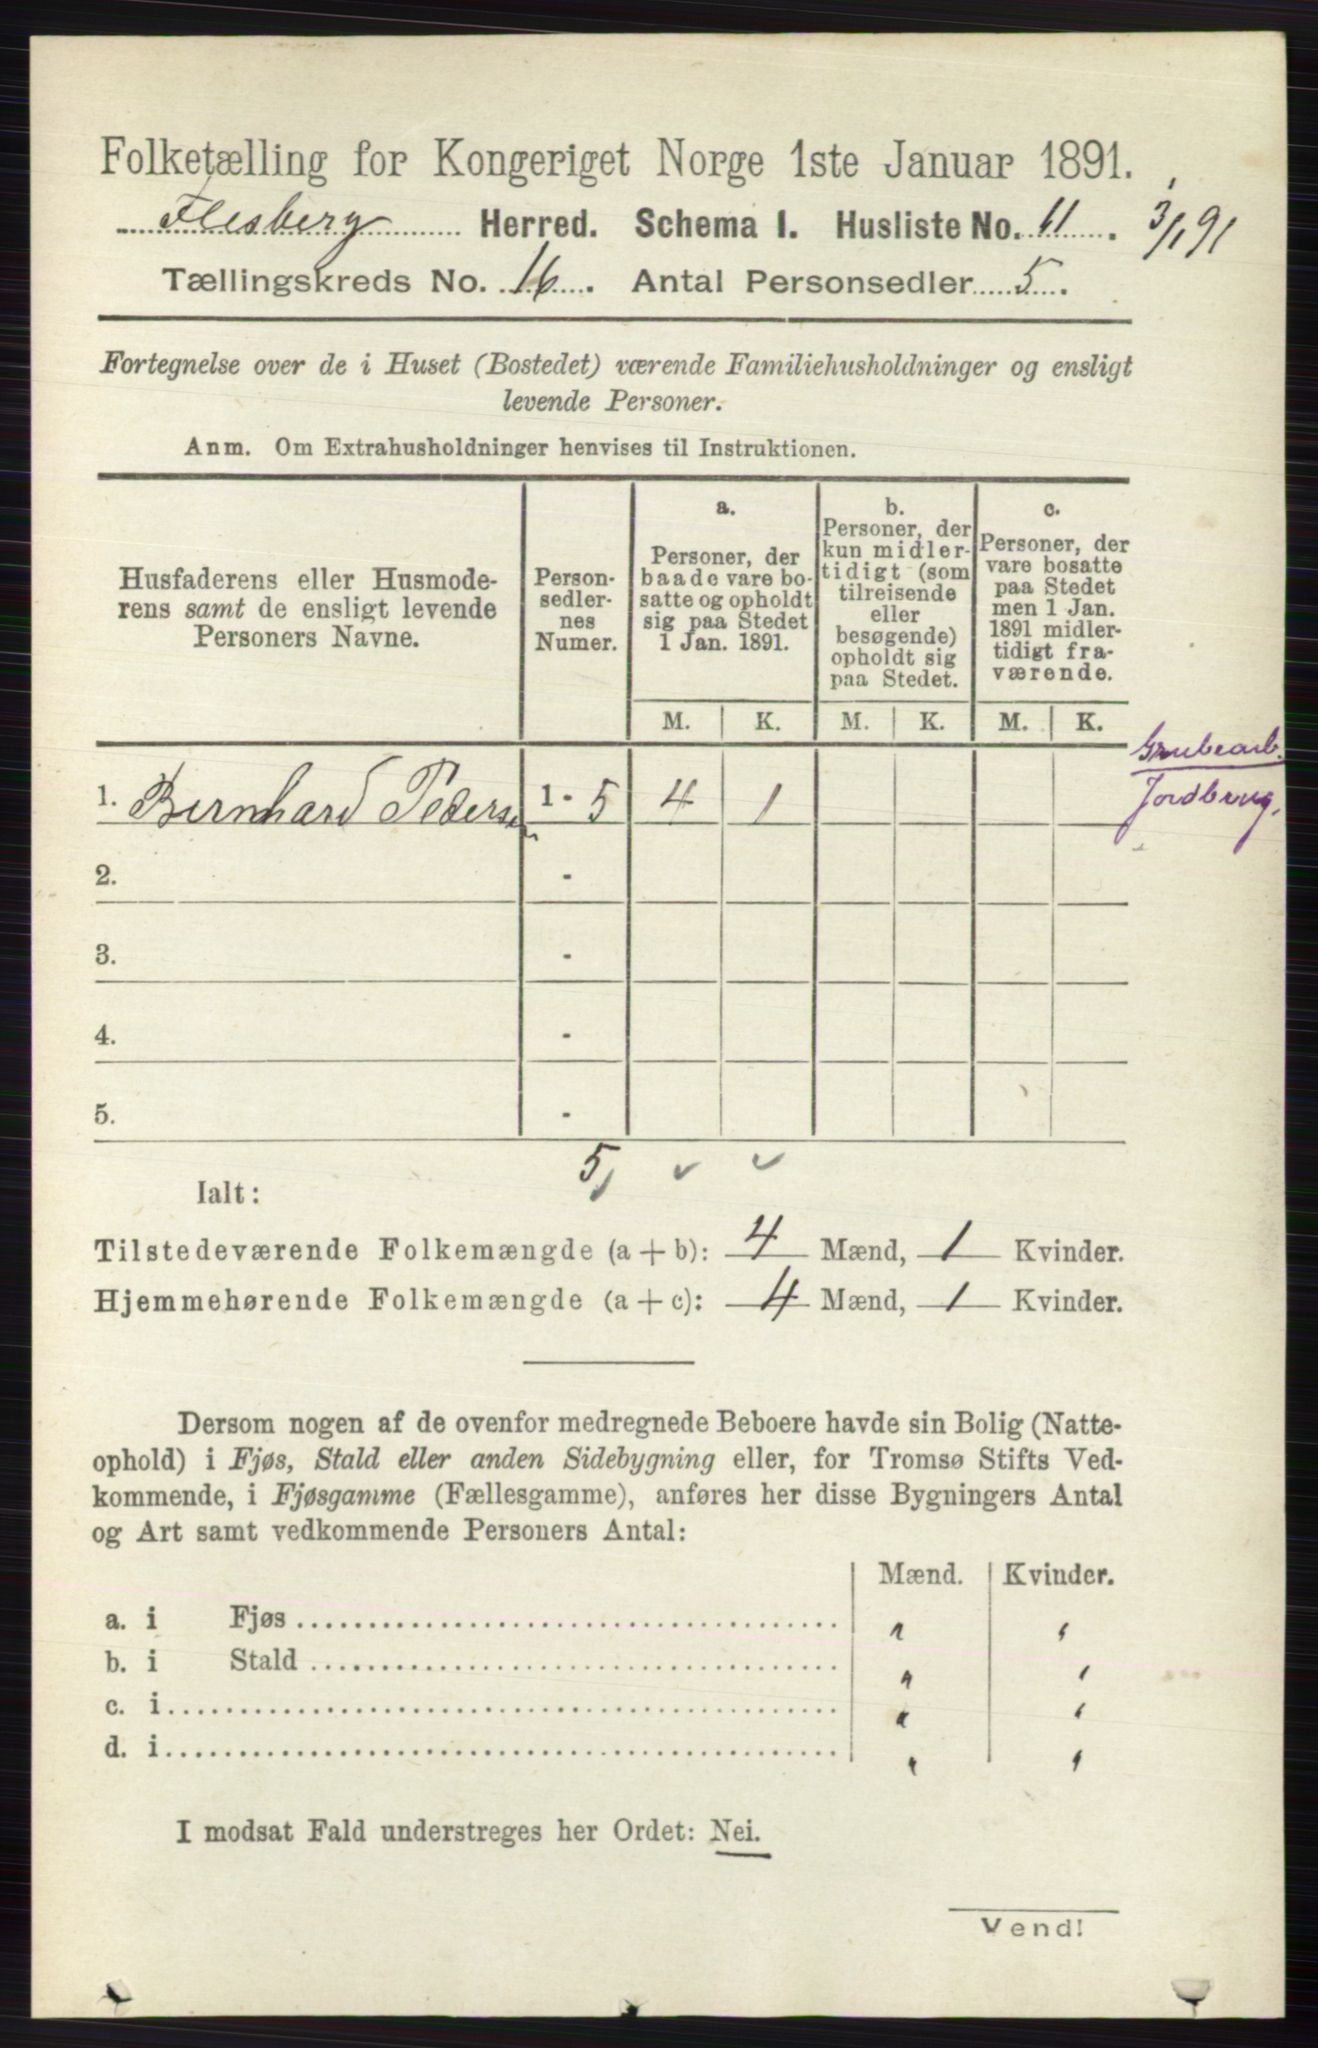 Folketælling for Kongeriget Norge 1ste Januar 1891.
Flesberg Herred. Schema I. Husliste No. 11. 3/1 91
Tællingskreds No. 16. Antal Personsedler 5.
Fortegnelse over de i Huset (Bostedet) værende Familiehusholdninger og ensligt
levende Personer.
Anm. Om Extrahusholdninger henvises til Instruktionen.
Husfaderens eller Husmode-
rens samt de ensligt levende
Personers Navne.
Person-
sedler-
nes
Numer.
a.
Personer, der
baade vare bo-
satte og opholdt
sig paa Stedet
1 Jan. 1891.
b.
Personer, der
kun midler-
tidigt (som
tilreisende
eller
besøgende)
opholdt sig
paa Stedet.
c.
Personer, der
vare bosatte
paa Stedet
men 1 Jan.
1891 midler-
tidigt fra-
værende.
M. K. M. K. M. K.
Grubearb.
1. Bernhard Pedersen 1 - 5 4 1 Jordbrug.
2. -
3. -
4. -
5. -
5
Ialt:
Tilstedeværende Folkemængde (a + b): 4 Mænd, 1 Kvinder.
Hjemmehørende Folkemængde (a + c): 4 Mænd, 1 Kvinder.
Dersom nogen af de ovenfor medregnede Beboere havde sin Bolig (Natte-
ophold) i Fjøs, Stald eller anden Sidebygning eller, for Tromsø Stifts Ved-
kommende, i Fjøsgamme (Fællesgamme), anføres her disse Bygningers Antal
og Art samt vedkommende Personers Antal:
Mænd. Kvinder.
a. i Fjøs " "
b. i Stald " "
c. i " "
d. i " "
I modsat Fald understreges her Ordet: Nei.
Vend!